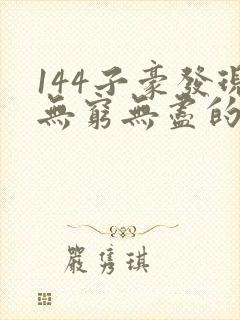 144子豪發現
無窮無盡的
嚴隽琪